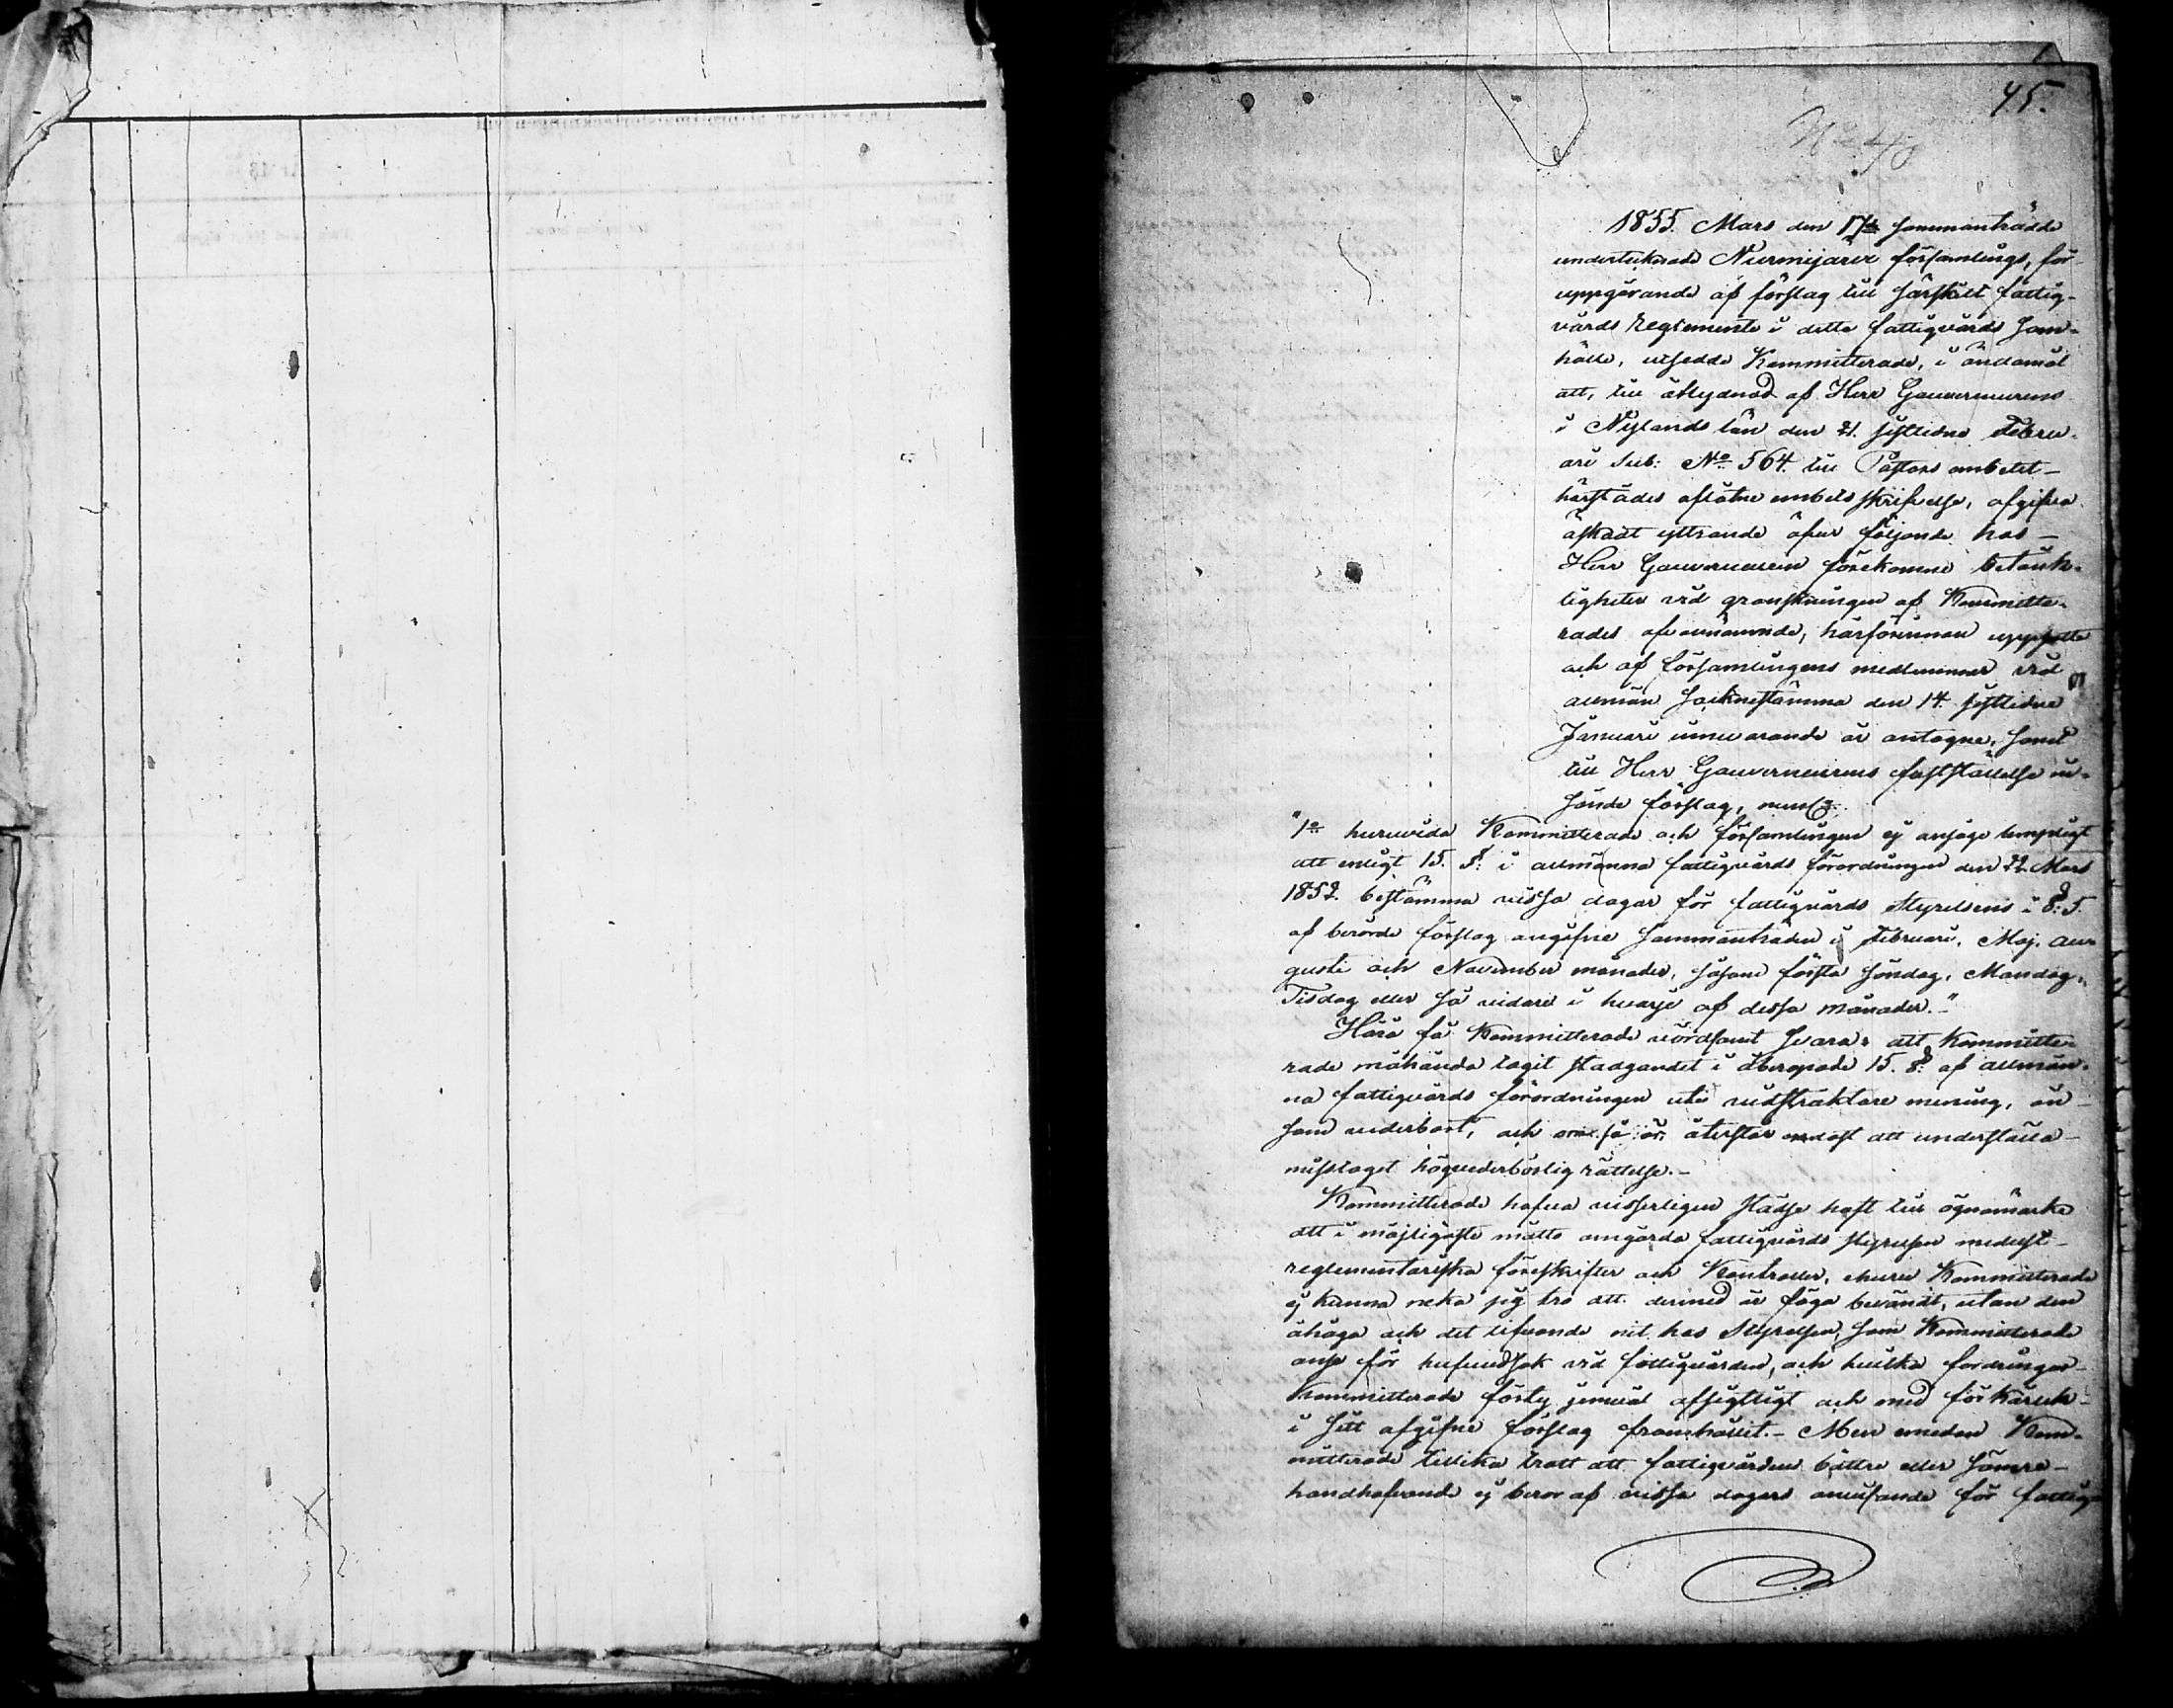 45.
1855. Mars den 17de sammanträdde
undertecknade Nurmijärvi församlings, för
uppgörande af förslag till särskilt fattig-
vårds reglemente i detta fattigvårds sam-
hälle, utsedde Kommitterade, i ändamål
att, till åtlydnad af Herr Gouverneurens
i Nylands län den 21. sistledne Febru-
ari sub: No 564. till Pastors embetet
härstädes aflåtne embets skrifvelse, afgifva
äskadt yttrande öfver följande hos
Herr Gouverneuren förekomne betänk-
ligheter vid granskningen af Kommitte-
rades ofvannämnde, härförinnan uppsatte
och af församlingens medlemmar vid
allmän Socknestämma den 14. sistledne
Januari innevarande år antagne, samt
till Herr Gouverneurens fastställelse in-
sände förslag, neml.
"1o huruvida Kommitterade och församlingen ej ansåge lämpligt
att enligt 15. §. i allmänna fattigvårds förordningen den 22 Mars
1852. bestämma vissa dagar för fattigvårds Styrelsens i §. 5.
af berörde förslag angifne sammanträden i Februari, Maj, Au-
gusti och November månader, såsom första Söndag, Måndag,
Tisdag eller så vidare i hvarje af dessa månader."
Härå få Kommitterade vördsamt svara: att Kommitte-
rade måhända tagit stadgandet i åberopade 15. §. af allmän-
na fattigvårds förordningen uti vidsträktare mening, än
som vederbort, och om så är, återstår endast att underställa
misstaget högvederbörlig rättelse.-
Kommitterade hafva visserligen städse haft till ögnamärke
att i möjligaste måtto omgärda fattigvårds styrelsen medelst
reglementariska föreskrifter och Kontroller, ehuru Kommitterade
ej kunna neka sig tro att dermed är föga bevändt, utan den
åhåga och det lifvande nit hos Styrelsen, som Kommitterade
anse för hufvudsak vid fattigvården, och hvilka fordringar
Kommitterade förty jemväl afsigtligt och med förkärlek
i sitt afgifne förslag framhållit.- Men emedan Kom-
mitterade tillika trott att fattigvårdens bättre eller sämre
handhafvande ej beror af vissa dagars anvisande för fattig-